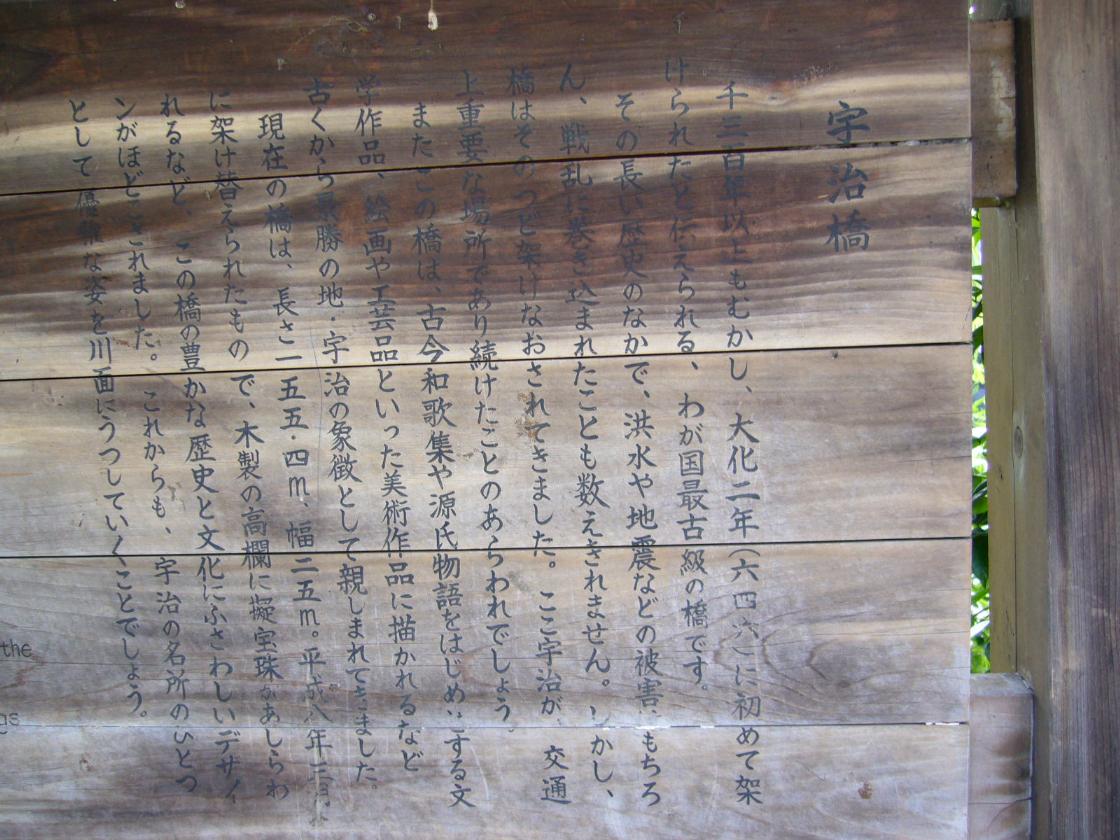 宇治橋
千三百年以上もむかし、大化二年(六四六)に初めて架
けられたと伝えられる、わが国最古級の橋です。
その長い歴史のなかで、洪水や地震などの被害、もちろ
ん、戦乱に巻き込まれたことも数えきれません。しかし、
橋はそのつど架けなおされてきました。ここ宇治が、交通
上重要な場所であり続けたことのあらわれでしょう。
またこの橋は、古今和歌集や源氏物語をはじめとする文
学作品、絵画や工芸品といった美術作品に描かれるなど
古くから景勝の地・宇治の象徴として親しまれてきました。
現在の橋は、長さ一五五・四m、幅二五m。平成八年三月
に架け替えられたもので、木製の高欄に擬宝珠があしらわ
れるなど、この橋の豊かな歴史と文化にふさわしいデザイ
ンがほどこされました。これからも、宇治の名所のひとつ
として優雅な姿を川面にうつしていくことでしょう。
the